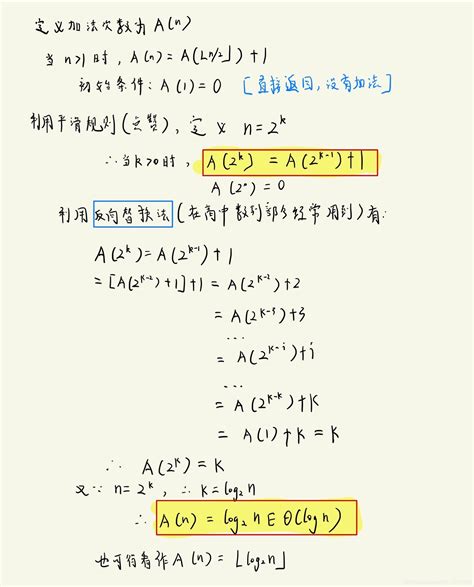 定义加法次数为A(n)
当 n>1 时, A(n) = A(⌊n/2⌋) + 1
初始条件: A(1) = 0 [直接返回, 没有加法]
利用平滑规则(点赞), 定义 n = 2^k
∴ 当 k>0 时, A(2^k) = A(2^{k-1}) + 1
A(2^0) = 0
利用反向替换法(在高中数列部分经常用到)有:
A(2^k) = A(2^{k-1}) + 1
= [A(2^{k-2}) + 1] + 1 = A(2^{k-2}) + 2
= A(2^{k-3}) + 3
...
= A(2^{k-i}) + i
...
= A(2^{k-k}) + k
= A(1) + k = k
∴ A(2^k) = k
又∵ n = 2^k, ∴ k = log₂n
∴ A(n) = log₂n ∈ Θ(log n)
也可符看作 A(n) = ⌊log₂n⌋